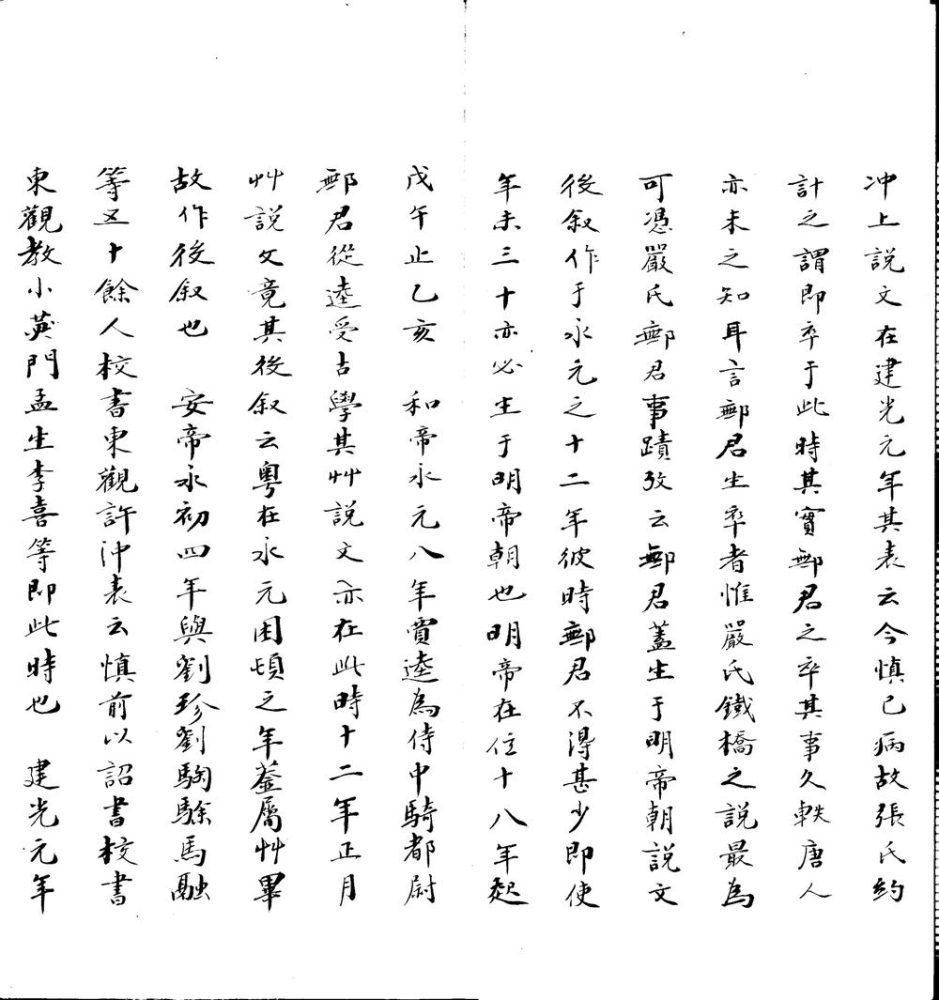 沖上説文在建光元年其表云今慎已病故張氏約
計之謂即卒于此時其實鄦君之卒其事久軼唐人
亦未之知耳言鄦君生卒者惟嚴氏鐵橋之説最為
可憑嚴氏鄦君事蹟攷云鄦君蓋生于明帝朝説文
後叙作于永元之十二年彼時鄦君不得甚少即使
年未三十亦必生于明帝朝也明帝在位十八年起
戊午止乙亥　和帝永元八年賈逵為侍中騎都尉
鄦君從逵受古學其艸説文亦在此時十二年正月
艸説文竟其後叙云粵在永元困頓之年葢屬艸畢
故作後叙也　安帝永初四年與劉珍劉騊駼馬融
等五十餘人校書東觀許沖表云慎前以詔書校書
東觀教小黃門孟生李喜等即此時也　建光元年